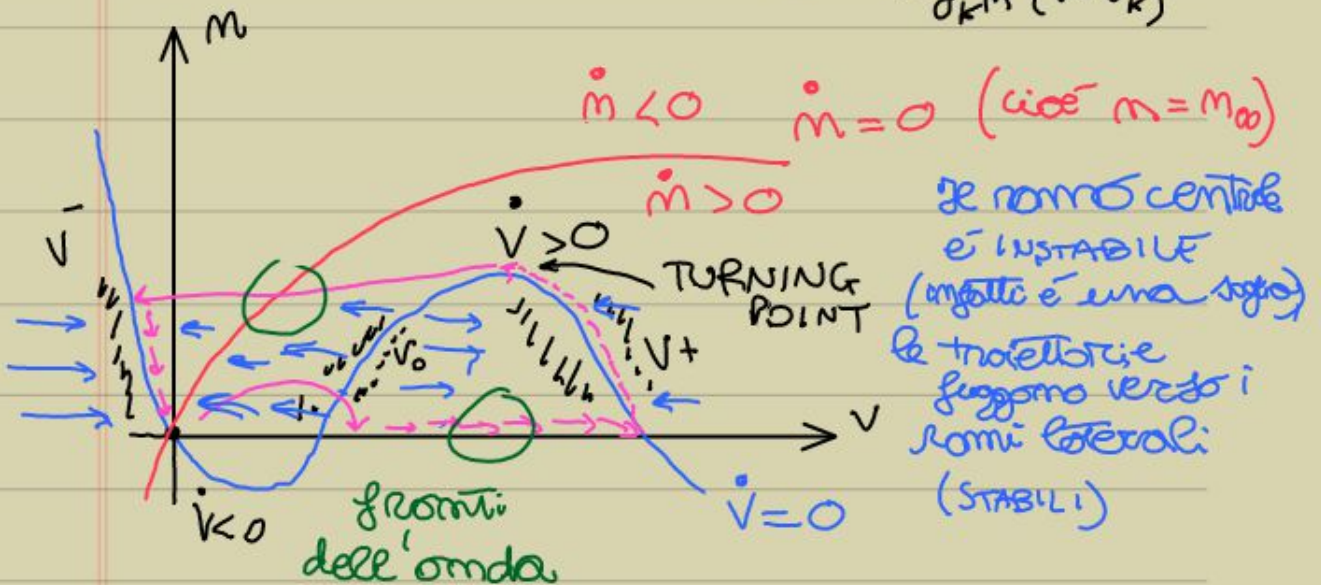 g_K n (
n
ṅ < 0
ṅ = 0 (cioè n = n∞)
ṅ > 0
V⁻
V̇ > 0
TURNING
POINT
V₀
V+
V
V̇ < 0
V̇ = 0
fronti
dell'onda
Il ramo centrale
è INSTABILE
(infatti è una soglia)
le traiettorie
fuggono verso i
rami laterali
(STABILI)